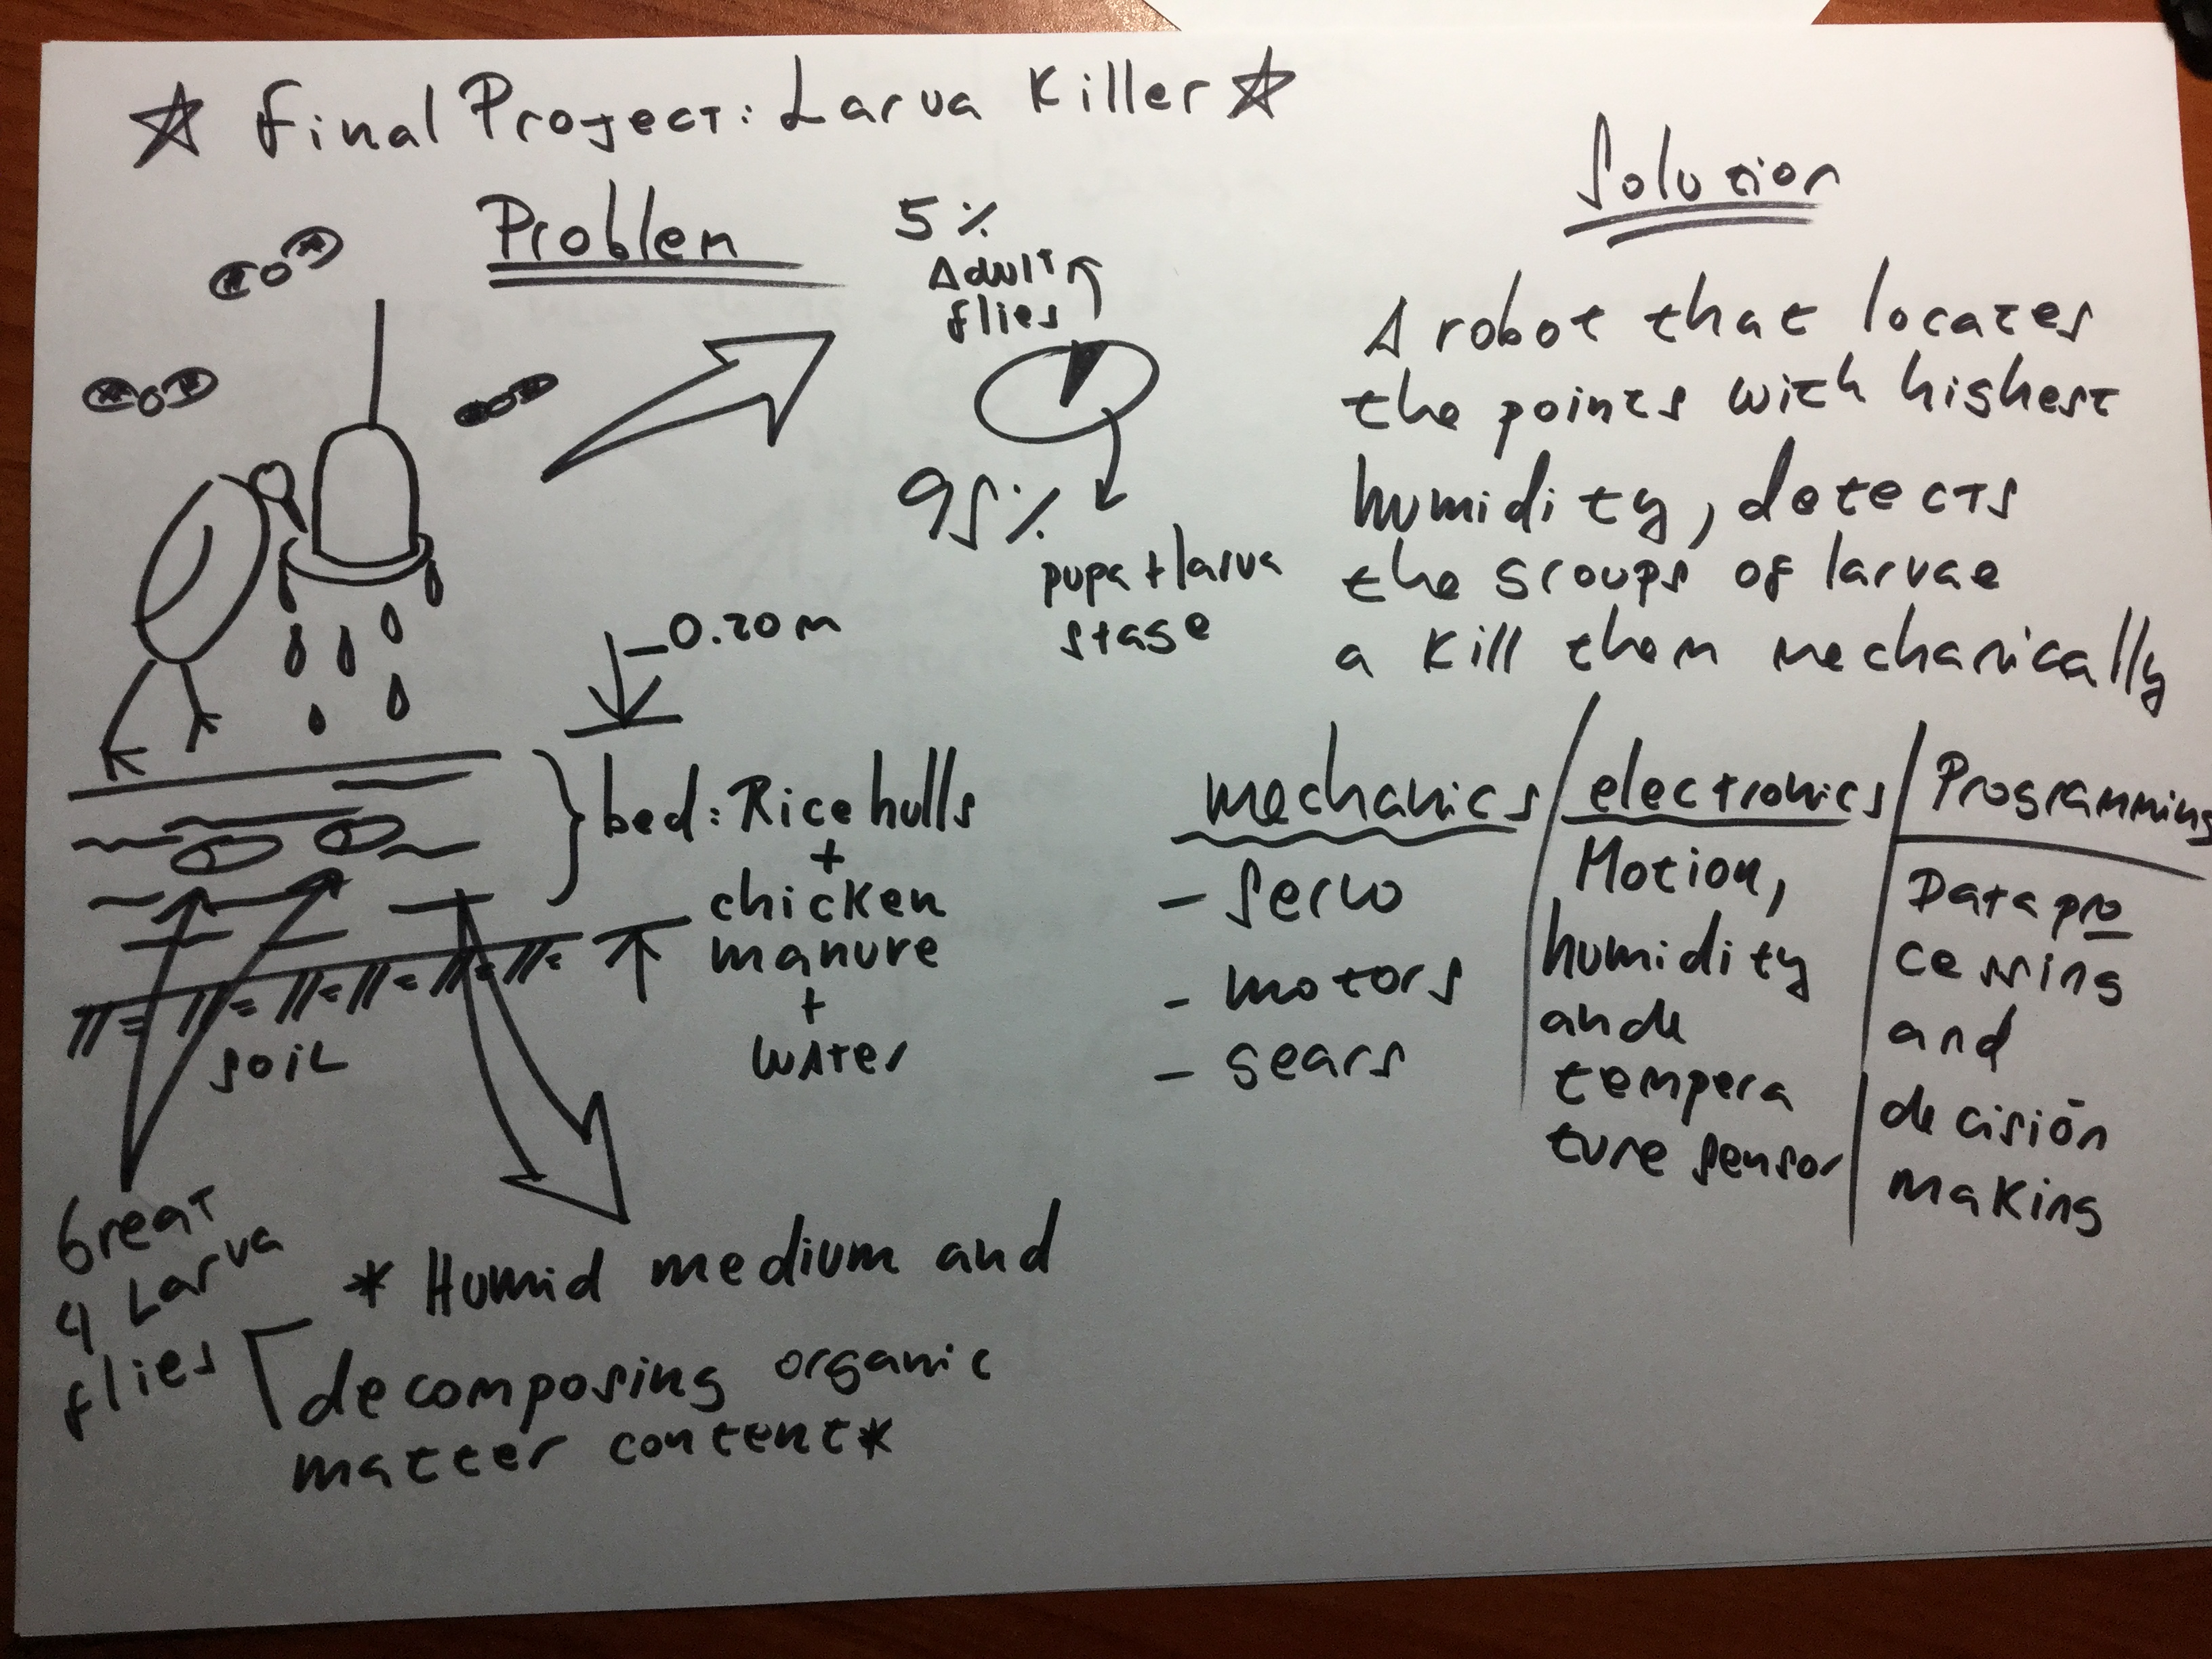 ☆ Final Project: Larva Killer ☆
Problem
5 %
Adult
flies
95 %
pupa + larva
stage
-0.20 m
bed: Rice hulls
+
chicken
manure
+
water
soil
Great
4 Larva
flies
* Humid medium and
decomposing organic
matter content *
Solution
A robot that locates
the points with highest
humidity, detects
the groups of larvae
a kill them mechanically
mechanics / electronics / Programming
- Servo
- motors
- gears
Motion,
humidity
and
tempera
ture sensor
Data pro
cessing
and
decisión
making